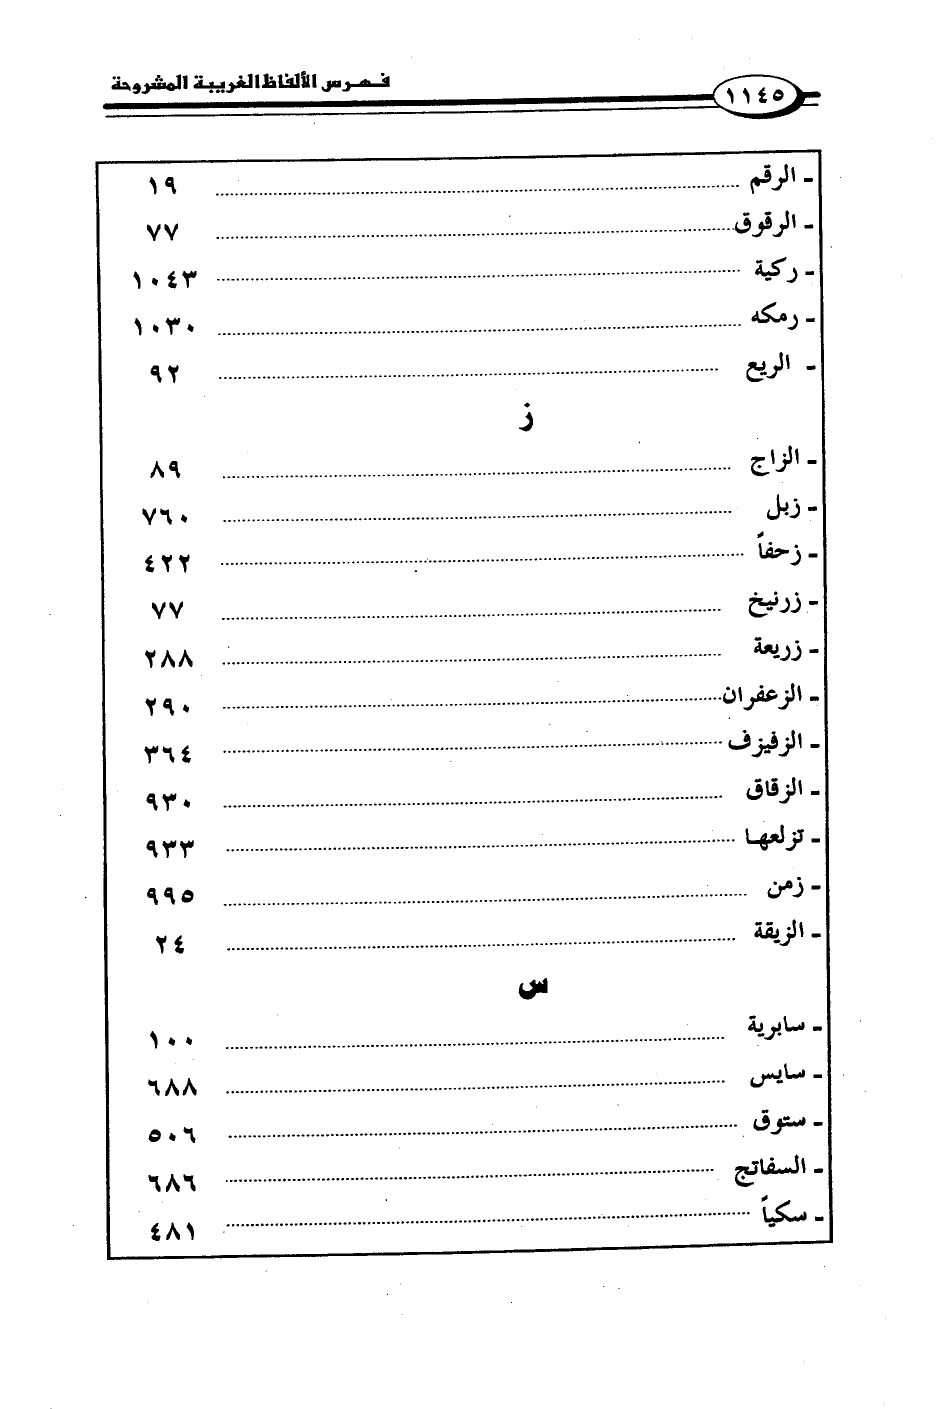 ١١٤٥
فهرس الألفاظ الغريبة المشروحة
- الرقم ........ ١٩
- الرقوق ........ ٧٧
- ركية ........ ١٠٤٣
- رمكه ........ ١٠٣٠
- الريع ........ ٩٢
ز
- الزاج ........ ٨٩
- زبل ........ ٧٦٠
- زحفاً ........ ٤٢٢
- زرنيخ ........ ٧٧
- زريعة ........ ٢٨٨
- الزعفران ........ ٢٩٠
- الزفيزف ........ ٣٦٤
- الزقاق ........ ٩٣٠
- تزلعها ........ ٩٣٣
- زمن ........ ٩٩٥
- الزيقة ........ ٢٤
س
- سابرية ........ ١٠٠
- سايس ........ ٦٨٨
- ستوق ........ ٥٠٦
- السفاتج ........ ٦٨٦
- سكياً ........ ٤٨١